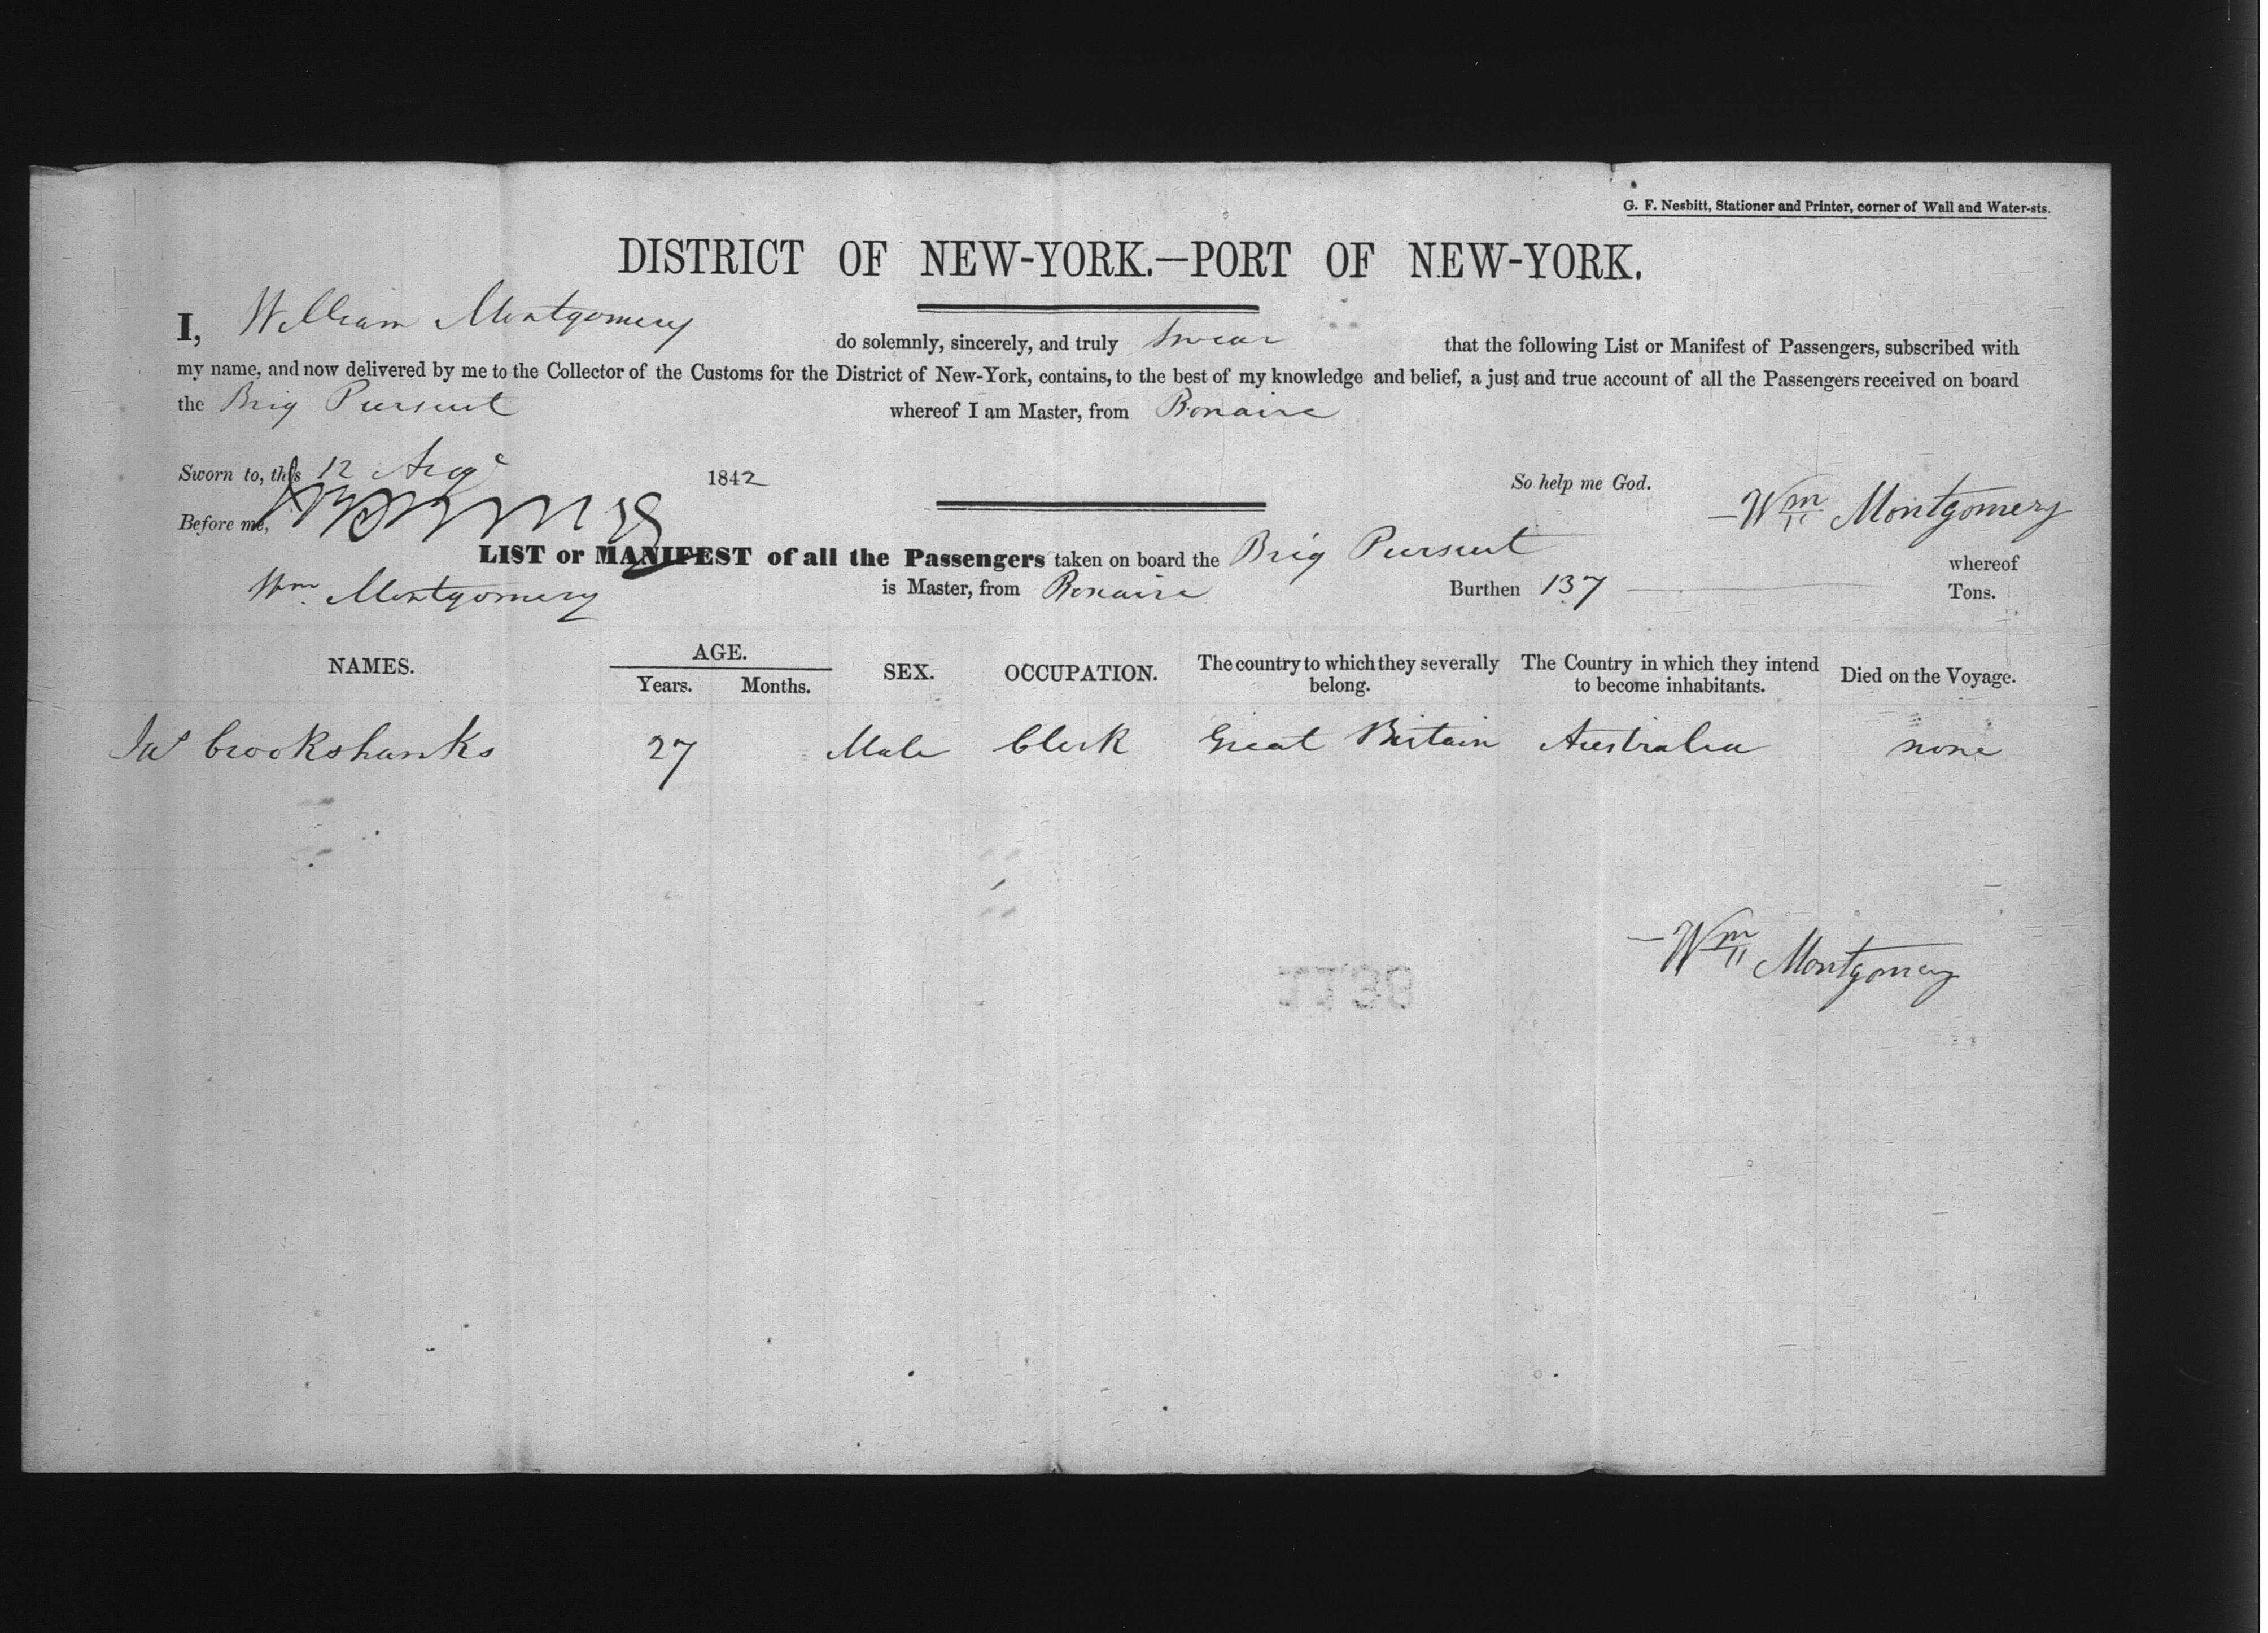 G. F. Nesbitt, Stationer and Printer, corner of Wall and Water-sts.
DISTRICT OF NEW-YORK.—PORT OF NEW-YORK.
I, William Montgomery do solemnly, sincerely, and truly swear that the following List or Manifest of Passengers, subscribed with
my name, and now delivered by me to the Collector of the Customs for the District of New-York, contains, to the best of my knowledge and belief, a just and true account of all the Passengers received on board
the Brig Pursuit whereof I am Master, from Bonaire
Sworn to, this 12 Aug 1842 So help me God.
Before me, Wm Montgomery
LIST or MANIFEST of all the Passengers taken on board the Brig Pursuit whereof
Wm Montgomery is Master, from Bonaire Burthen 137 Tons.
NAMES. AGE. SEX. OCCUPATION. The country to which they severally belong. The Country in which they intend to become inhabitants. Died on the Voyage.
Years. Months.
Jas Crookshanks 27 Male Clerk Great Britain Australia none
Wm Montgomery